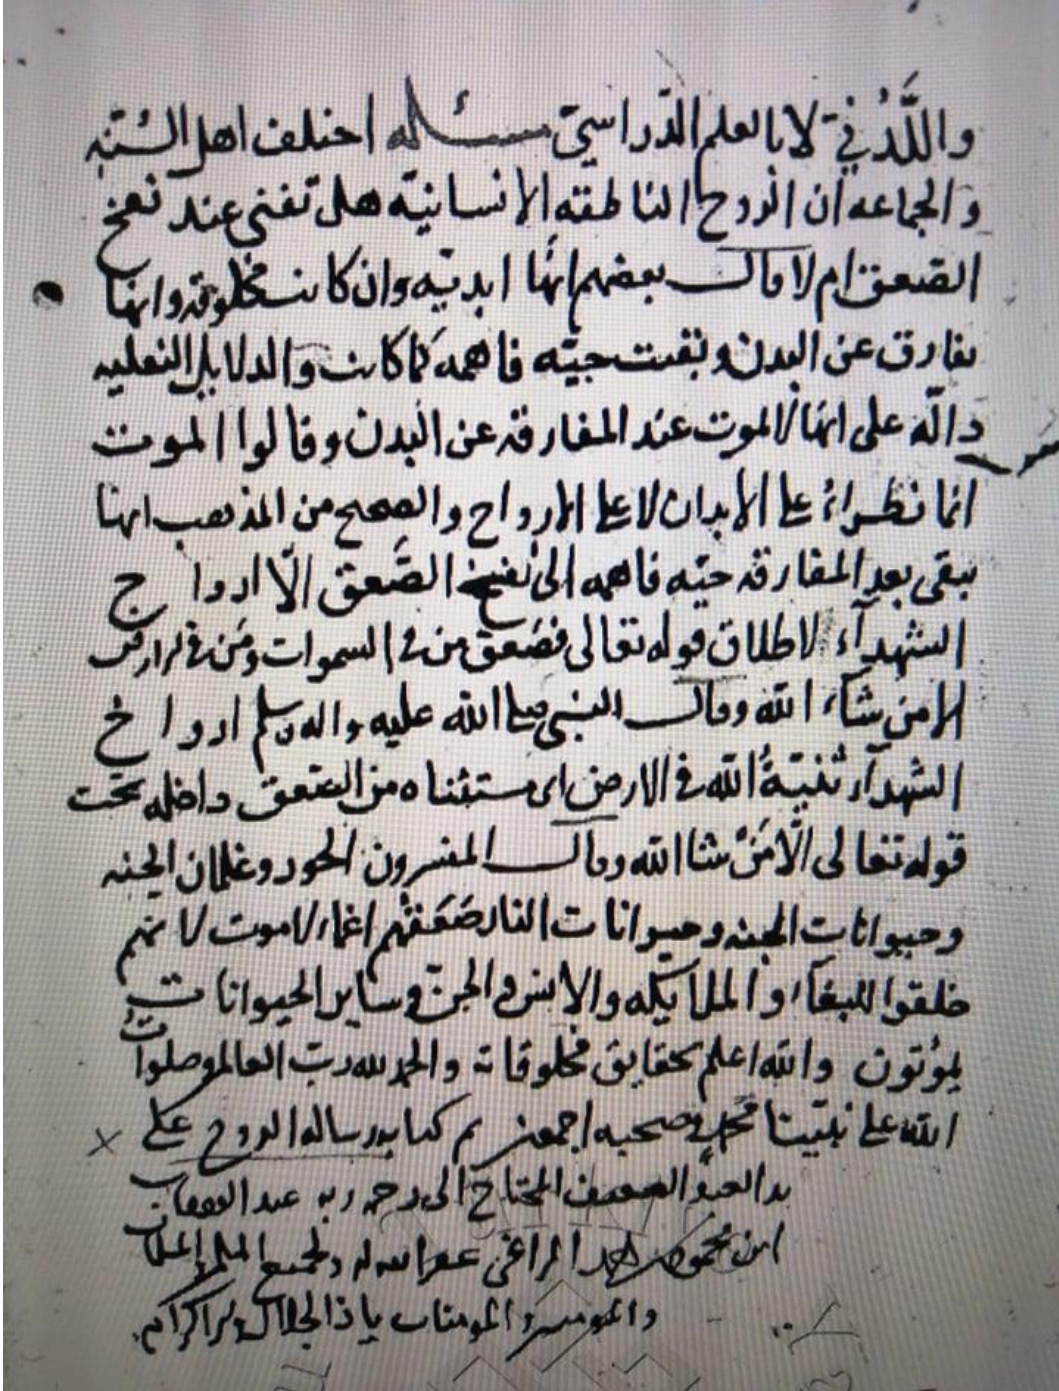 واللَّدُنِّي لا بالعلم الدّراسيّ مسئله اختلف اهل السُّنّه
والجماعه ان الروح الناطقه الانسانيّه هل تفنى عند نفخ
الصعق ام لا قال بعضهم انّها ابديّه وان كانت مخلوقه وانها
يفارق عن البدن وبقيت حيّه فاهمه كما كانت والدلايل النقليه
دالّه على انها لا لموت عند المفارقه عن البدن وقالوا الموت
انما نظراءُ على الابدان لا على الارواح والصحيح من المذهب انها
يبقى بعد المفارقه حيّه فاهمه الى نفخه الصَّعق الّا ارواح
الشهدآء لاطلاق قوله تعالى فصَعق من في السموات ومَن في الارض
الا من شاء الله وقال النبي صلى الله عليه واله وسلم ارواح
الشهدآء ثنيّةُ الله في الارض اى مستثناه من الصعق داخله تحت
قوله تعالى الّا مَنْ شاالله وقال المفسرون الحور وغلمان الجنه
وحيوانات الجنه وحيوانات النار صَعَقتُهم اغماء لا موت لا نهم
خلقوا للبقاء و الملايكه والانس والجنّ وساير الحيوانات
يموُتون والله اعلم بحقايق مخلوقاته والحمد لله ربّ العالم وصلواتُ
الله على نبيّنا محمد وصحبه اجمعين تم كتابه رساله الروح على
يد العبد الضعيف المحتاج الى رحمه ربه عبد
ابن محمود غفر الله له ولجميع
والمومنين والمومنات يا ذا الجلال والاكرام.